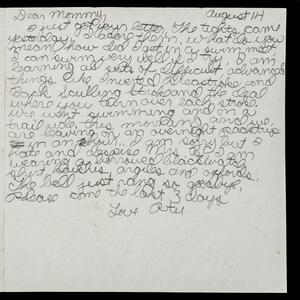 Dear Mommy, August 14
I just got your letter. The tights came
yesterday. I adore them. What do you
mean how did I get in a swim meet
I can swim very well if I try. I am
learning all sorts of difficult advanced
things like Inverted Breaststroke and
Back Sculling Stroke and the deal
where you turn over each stroke.
We went swimming and on a
trail ride this morning and we
are leaving on an overnight packtrip
in an hour. I am sorry but I
hate and despise girls. Well I am
wearing a borrowed blackwatch
shirt, argyles and oxfords.
The bell just rang so goodbye.
Please come the last 3 days
Love